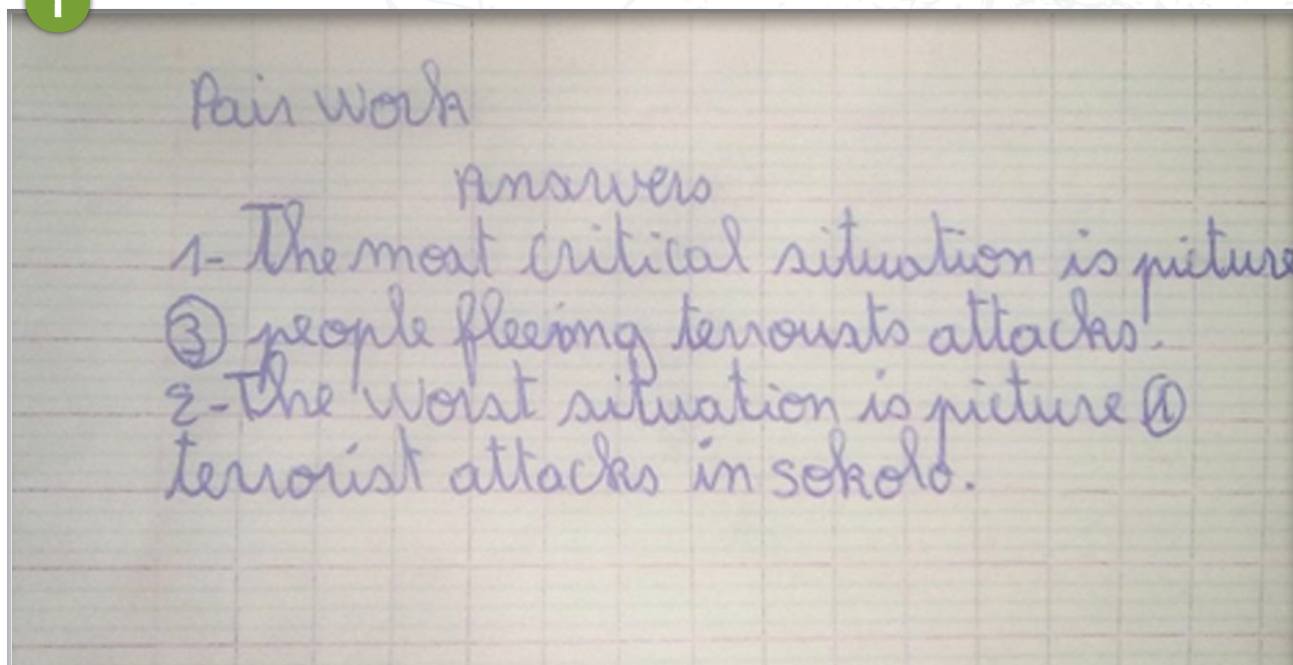 1
Pair work
Answers
1- The most critical situation is picture
③ people fleeing terrorists attacks.
2- The worst situation is picture ①
terrorist attacks in sokolo.